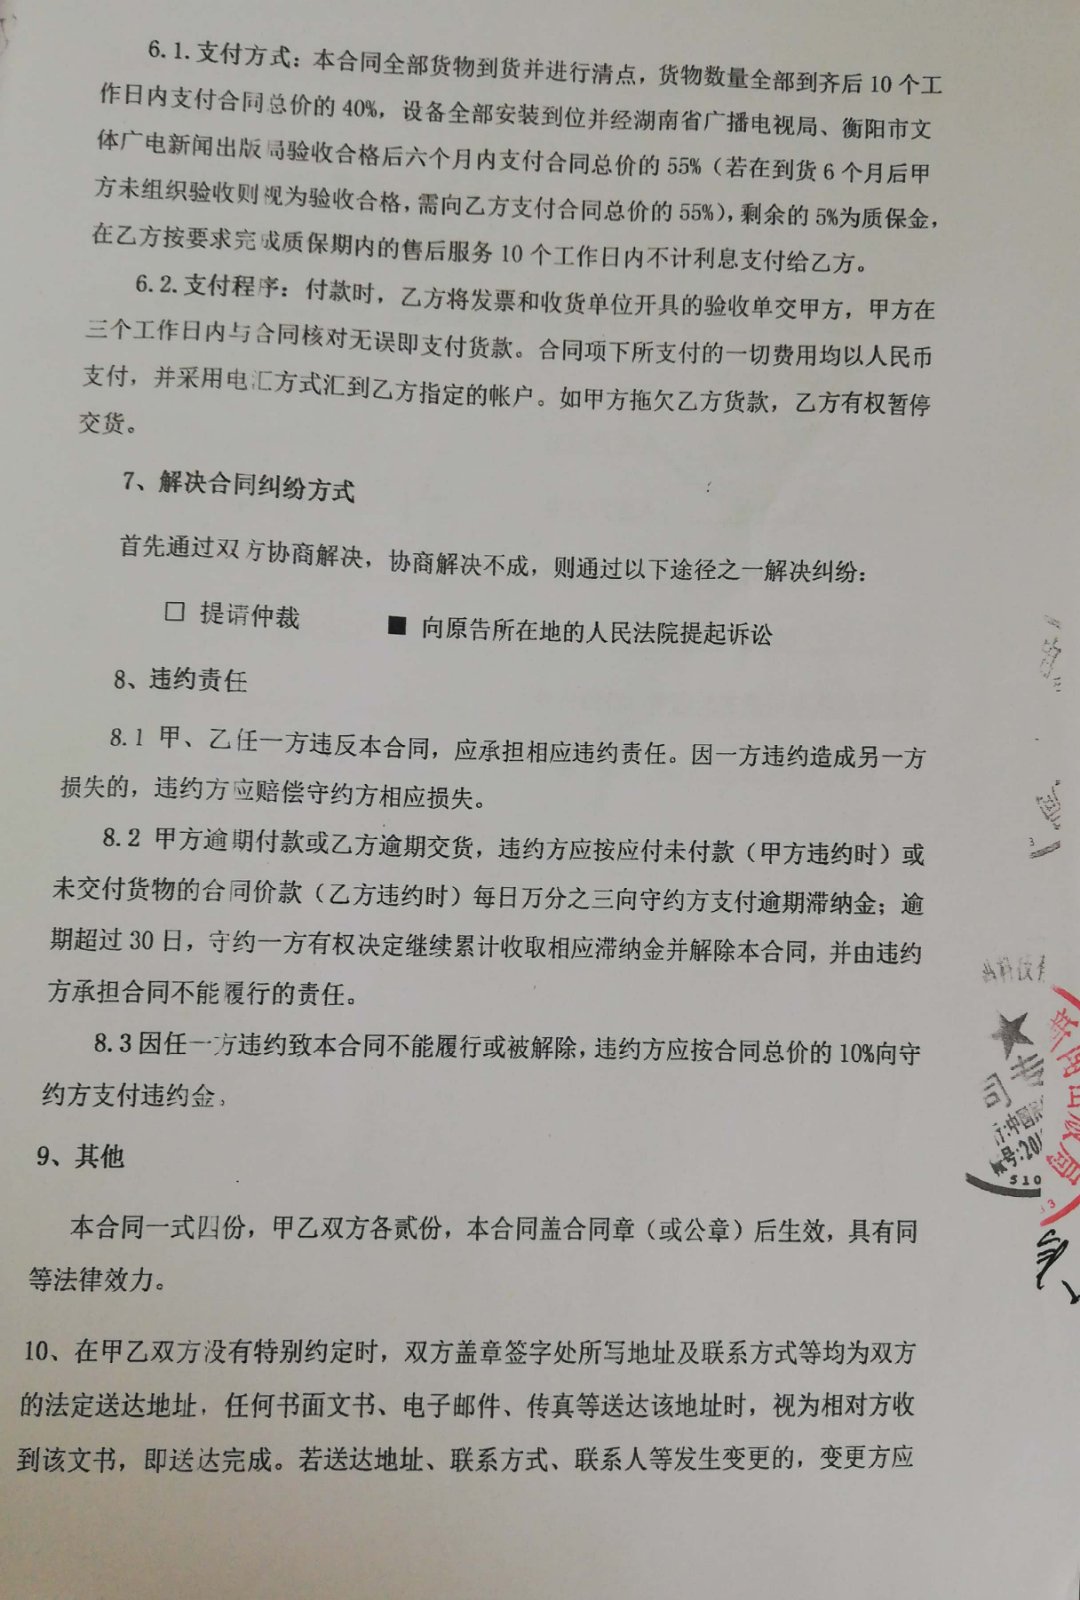 6.1.支付方式：本合同全部货物到货并进行清点，货物数量全部到齐后 10 个工
作日内支付合同总价的 40%，设备全部安装到位并经湖南省广播电视局、衡阳市文
体广电新闻出版局验收合格后六个月内支付合同总价的 55%（若在到货 6 个月后甲
方未组织验收则视为验收合格，需向乙方支付合同总价的 55%），剩余的 5%为质保金，
在乙方按要求完成质保期内的售后服务 10 个工作日内不计利息支付给乙方。
6.2.支付程序：付款时，乙方将发票和收货单位开具的验收单交甲方，甲方在
三个工作日内与合同核对无误即支付货款。合同项下所支付的一切费用均以人民币
支付，并采用电汇方式汇到乙方指定的帐户。如甲方拖欠乙方货款，乙方有权暂停
交货。
7、解决合同纠纷方式
首先通过双方协商解决，协商解决不成，则通过以下途径之一解决纠纷：
□ 提请仲裁 ■ 向原告所在地的人民法院提起诉讼
8、违约责任
8.1 甲、乙任一方违反本合同，应承担相应违约责任。因一方违约造成另一方
损失的，违约方应赔偿守约方相应损失。
8.2 甲方逾期付款或乙方逾期交货，违约方应按应付未付款（甲方违约时）或
未交付货物的合同价款（乙方违约时）每日万分之三向守约方支付逾期滞纳金；逾
期超过 30 日，守约一方有权决定继续累计收取相应滞纳金并解除本合同，并由违约
方承担合同不能履行的责任。
8.3 因任一方违约致本合同不能履行或被解除，违约方应按合同总价的 10%向守
约方支付违约金。
9、其他
本合同一式四份，甲乙双方各贰份，本合同盖合同章（或公章）后生效，具有同
等法律效力。
10、在甲乙双方没有特别约定时，双方盖章签字处所写地址及联系方式等均为双方
的法定送达地址，任何书面文书、电子邮件、传真等送达该地址时，视为相对方收
到该文书，即送达完成。若送达地址、联系方式、联系人等发生变更的，变更方应
司专
中国
号:201
510
新闻出版局